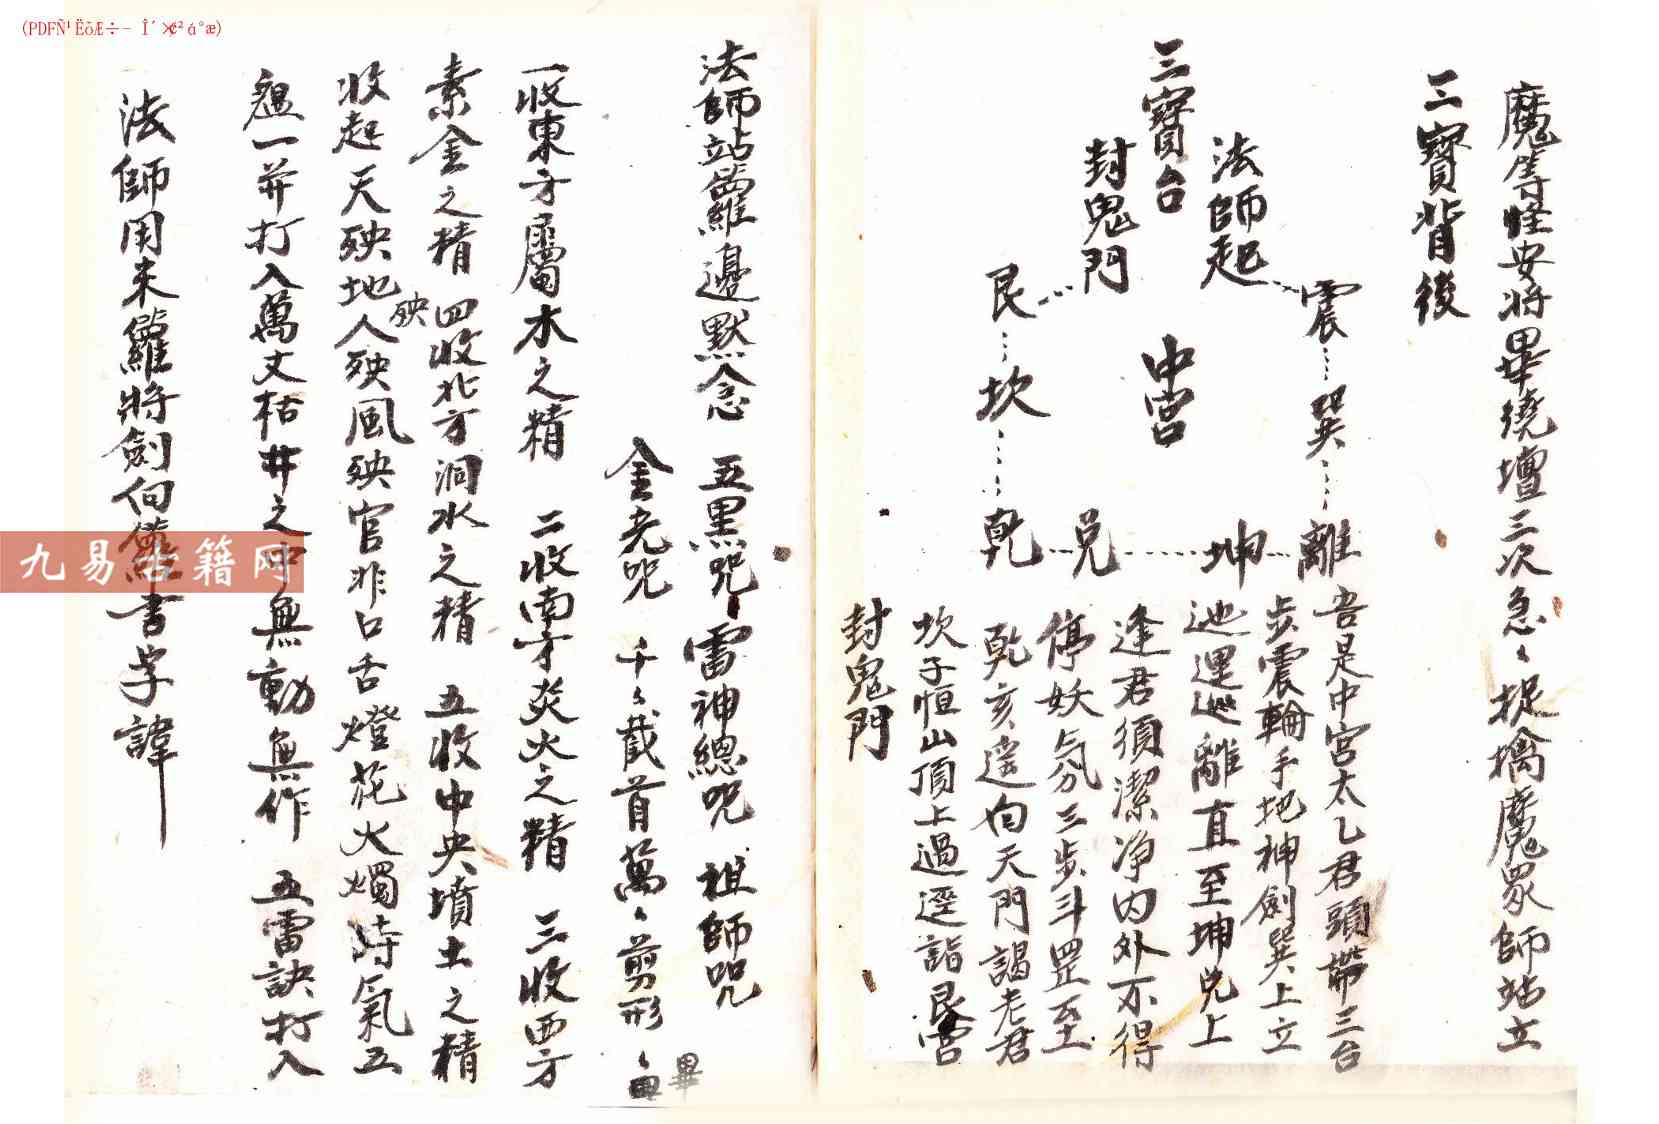 (PDFÑ¹ËõÆ÷- Î´×¢²á°æ)
魔等怪安將畢繞壇三次急〻捉擒魔眾師站立
三寶背後
法師起
三寶台
封鬼門
震
巽
離
坤
兌
乾
坎
艮
中宮
吾是中宮太乙君頭帶三台
步震輪手把神劍巽上立
迆邐巡離直至坤兌上
逢君須潔净内外不得
停妖氛三步斗罡至
乾亥遥向天門謁老君
坎子恒山頂上過逕詣艮宮
封鬼門
法師站籮邊默念 五黑咒 雷神總咒 祖師咒
金光咒 千〻截首萬〻剪形〻 畢
一收東方屬木之精 二收南方炎火之精 三收西方
素金之精 四收北方洞水之精 五收中央墳土之精
收起天殃地殃人殃風殃官非口舌燈花火燭時氣五
瘟一并打入萬丈枯井之中無動無作 五雷訣打入
法師用米籮將劍向籮書字諱
九易古籍网